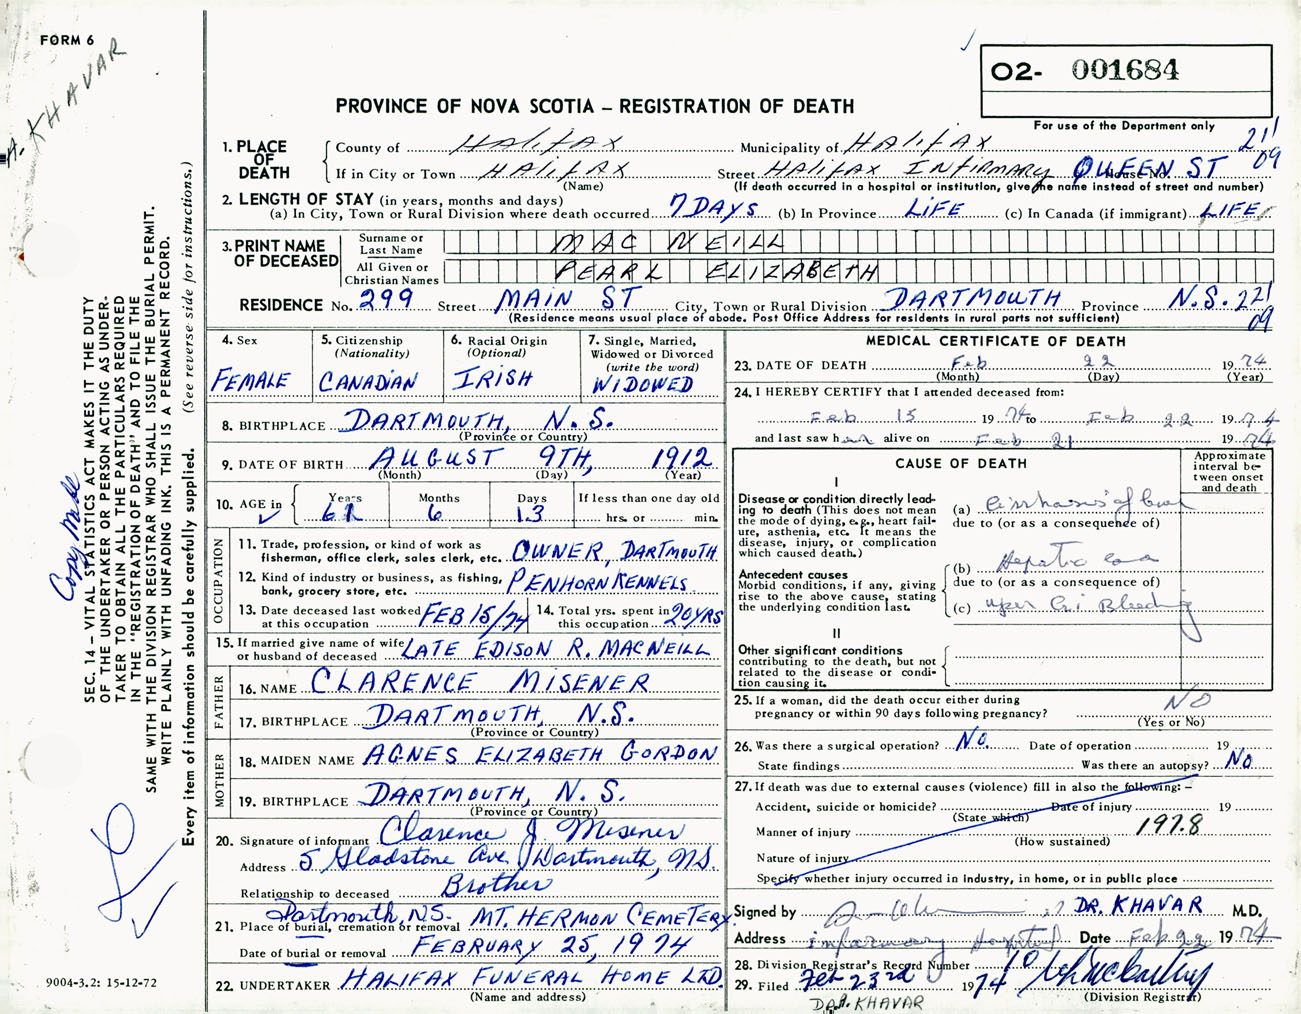 FORM 6
A. KHAVAR
O2- 001684
For use of the Department only
PROVINCE OF NOVA SCOTIA – REGISTRATION OF DEATH
21/09
1. PLACE OF DEATH
County of HALIFAX Municipality of HALIFAX
If in City or Town HALIFAX Street HALIFAX INFIRMARY House No. QUEEN ST
(Name) (If death occurred in a hospital or institution, give the name instead of street and number)
2. LENGTH OF STAY (in years, months and days)
(a) In City, Town or Rural Division where death occurred 7 DAYS (b) In Province LIFE (c) In Canada (if immigrant) LIFE
3. PRINT NAME OF DECEASED
Surname or Last Name MAC NEILL
All Given or Christian Names PEARL ELIZABETH
RESIDENCE No. 299 Street MAIN ST City, Town or Rural Division DARTMOUTH Province N.S. 221/09
(Residence means usual place of abode. Post Office Address for residents in rural parts not sufficient)
4. Sex
FEMALE
5. Citizenship
(Nationality)
CANADIAN
6. Racial Origin
(Optional)
IRISH
7. Single, Married, Widowed or Divorced
(write the word)
WIDOWED
8. BIRTHPLACE DARTMOUTH, N.S.
(Province or Country)
9. DATE OF BIRTH AUGUST 9TH, 1912
(Month) (Day) (Year)
10. AGE in Years Months Days If less than one day old
61 6 13 hrs. or min.
OCCUPATION
11. Trade, profession, or kind of work as fisherman, office clerk, sales clerk, etc. OWNER, DARTMOUTH
12. Kind of industry or business, as fishing, bank, grocery store, etc. PENHORN KENNELS
13. Date deceased last worked at this occupation FEB 15/74
14. Total yrs. spent in this occupation 20 YRS
15. If married give name of wife or husband of deceased LATE EDISON R. MACNEILL
FATHER
16. NAME CLARENCE MISENER
17. BIRTHPLACE DARTMOUTH, N.S.
(Province or Country)
MOTHER
18. MAIDEN NAME AGNES ELIZABETH GORDON
19. BIRTHPLACE DARTMOUTH, N.S.
(Province or Country)
20. Signature of informant Clarence J. Misener
Address 5 Gladstone Ave, Dartmouth, N.S.
Relationship to deceased Brother
21. Place of burial, cremation or removal Dartmouth, N.S. MT. HERMON CEMETERY
Date of burial or removal FEBRUARY 25, 1974
22. UNDERTAKER HALIFAX FUNERAL HOME LTD.
(Name and address)
MEDICAL CERTIFICATE OF DEATH
23. DATE OF DEATH Feb 22 1974
(Month) (Day) (Year)
24. I HEREBY CERTIFY that I attended deceased from:
Feb 15 1974 to Feb 22 1974
and last saw her alive on Feb 21 1974
CAUSE OF DEATH
Approximate interval between onset and death
I
Disease or condition directly leading to death (This does not mean the mode of dying, e.g., heart failure, asthenia, etc. It means the disease, injury, or complication which caused death.)
(a) Cirrhosis of liver
due to (or as a consequence of)
Antecedent causes
Morbid conditions, if any, giving rise to the above cause, stating the underlying condition last.
(b) Hepatic coma
due to (or as a consequence of)
(c) upper G.I Bleeding
II
Other significant conditions
contributing to the death, but not related to the disease or condition causing it.
25. If a woman, did the death occur either during pregnancy or within 90 days following pregnancy? NO
(Yes or No)
26. Was there a surgical operation? No. Date of operation 19
State findings Was there an autopsy? No
27. If death was due to external causes (violence) fill in also the following: –
Accident, suicide or homicide? Date of injury 19
(State which)
Manner of injury 197.8
(How sustained)
Nature of injury
Specify whether injury occurred in industry, in home, or in public place
Signed by DR. KHAVAR M.D.
Address infirmary Hospital Date Feb 22 1974
28. Division Registrar's Record Number
29. Filed Feb 23rd 1974
(Division Registrar)
DR. A. KHAVAR
SEC. 14 – VITAL STATISTICS ACT MAKES IT THE DUTY
OF THE UNDERTAKER OR PERSON ACTING AS UNDER-
TAKER TO OBTAIN ALL THE PARTICULARS REQUIRED
IN THE "REGISTRATION OF DEATH" AND TO FILE THE
SAME WITH THE DIVISION REGISTRAR WHO SHALL ISSUE THE BURIAL PERMIT.
WRITE PLAINLY WITH UNFADING INK. THIS IS A PERMANENT RECORD.
Every item of information should be carefully supplied. (See reverse side for instructions.)
Copy Made
9004-3.2: 15-12-72